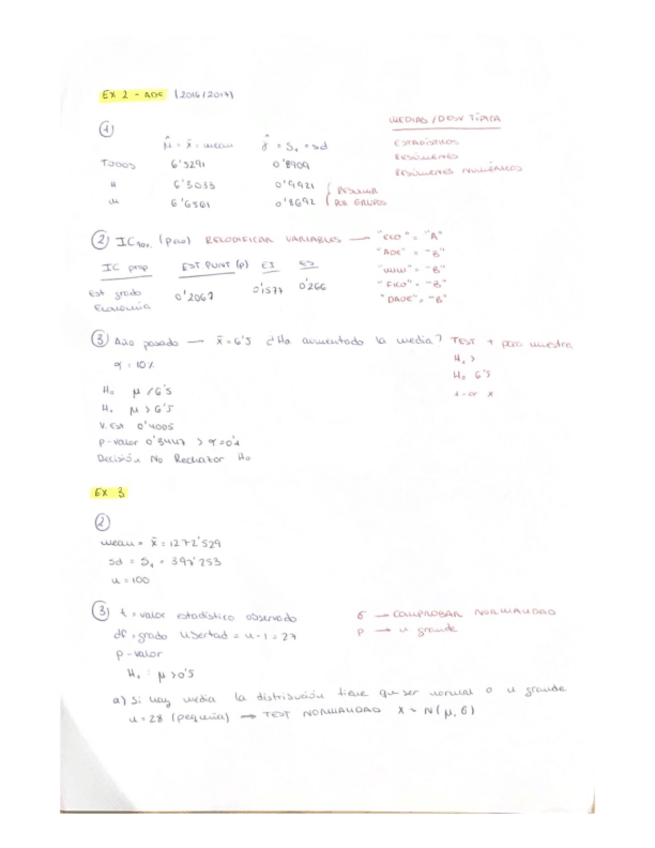 EX 2 - ADE (2016/2017)
MEDIAS / DESV TÍPICA
①
μ̂ = x̄ = mean   σ̂ = S₁ = sd   ESTADÍSTICOS
TODOS   6'5291   0'8909   RESÚMENES
H   6'3033   0'9921   RESÚMENES NUMÉRICOS
M   6'6561   0'8692   RESUMIR POR GRUPOS
② IC 90%. (p) RECODIFICAR VARIABLES → "ECO" = "A"
"ADE" = "B"
IC prop   EST PUNT (p)   EI   ES   = "B"
Est grado   0'2067   0'1577   0'266   "FICO" = "B"
Economía   "DADE" = "B"
③ Año pasado — x̄ = 6'5 ¿Ha aumentado la media? TEST t para muestra
α = 10%   H₁ >
H₀ 6'5
H₀ μ ≤ 6'5
H₁ μ > 6'5
V. Est 0'4005
p-valor 0'3447 > α = 0'1
Decisión No Rechazar H₀
EX 3
②
mean = x̄ = 1272'529
sd = S₁ = 397'253
n = 100
③ t = valor estadístico observado   σ → COMPROBAR NORMALIDAD
df = grado libertad = n - 1 = 27   p → n grande
p-valor
H₁ : μ > 0'5
a) Si hay media la distribución tiene que ser normal o n grande
n = 28 (pequeña) → TEST NORMALIDAD X ~ N(μ, σ)